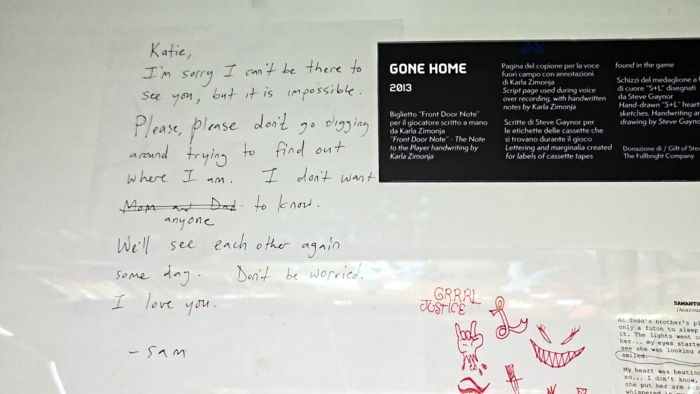 Katie,
I'm sorry I can't be there to
see you, but it is impossible.
Please, please don't go digging
around trying to find out
where I am. I don't want
Mom and Dad to know.
anyone
We'll see each other again
some day. Don't be worried.
I love you.
- Sam
GONE HOME
2013
Biglietto "Front Door Note"
per il giocatore scritto a mano
da Karla Zimonja
"Front Door Note" - The Note
to the Player handwriting by
Karla Zimonja
Pagina del copione per la voce
fuori campo con annotazioni
di Karla Zimonja
Script page used during voice
over recording, with handwritten
notes by Karla Zimonja
Scritte di Steve Gaynor per
le etichette delle cassette che
si trovano durante il gioco
Lettering and marginalia created
for labels of cassette tapes
found in the game
Schizzi del medaglione a
di cuore "S+L" disegnati
da Steve Gaynor
Hand-drawn "S+L" heart
sketches. Handwriting an
drawing by Steve Gayno
Donazione di / Gift of Ste
The Fullbright Company
GRRRL
JUSTICE
L
SAMANTH
At Todd's brother's
only a futon to sleep
it. The lights went o
her... my eyes starte
see she was looking
smiled.
My heart was beatin
so... I don't know,
she put her arm
whispered